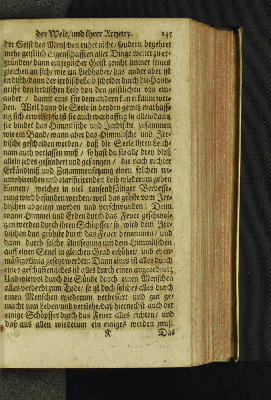 der Welt/ und Ihrer Artzney. 145
der Geist des Menschen ruhet nicht/ sondern begehret
mehr geistliche Eigenschafften aller Dinge weiter zuer-
gründen/ dann ein jeglicher Geist zeucht immer seines
gleichen an sich/ wie im Liebhaber/ das ander aber ist
irdisch/
geiste den irdischen Leib von den geistlichen von ein-
ander /
den. Weil dann die Seele in beyden gewiß warhaff-
tig sich erweiset/ so ist sie auch warhafftig in allen/ dann
sie bindet das Himmlische und Irdische zusammen
wie ein Band/ wann aber das Himmlische und Irr-
dische gescheiden werden / daß die Seele ihren Leich-
nam auch verlassen muß / so hast du sie alle drey bloß
allein jedes gesondert und gefangen / die nach rechter
Erkändtniß und Zusammensetzung einen solchen tri-
umphirenden und clarificirenden Leib wiederum geben
können / welcher in viel tausendfältiger Verbesse-
rung wird befunden werden/ weil das gröbste vom Irr-
dischen abgelegt worden und verschwunden: Denn
wann Himmel und Erden durch das Feuer geschmol-
tzen werden durch ihren Schöpffer/ so wird dem Irr-
dischen das gröbste durch das Feuer benommen/ und
dann durch solche Aufsteigung mit dem Himmlischen
auff einen Senel in gleichen Grad erhöhet/ und eben-
mässig
eines geschaffen/ jedes ist alles durch einen angeordnet;
Und wie wol durch die Sünde durch einen Menschen
alles verderbt zum Tode/ so ist doch solches alles durch
einen Menschen wiederum verbessert und gut ge-
macht zum Leben/ und verstehe/ daß hiernechst auch der
einige Schöpffer durch das Feuer alles richten/ und
daß aus allen wiederum ein einiges werden muß.
K Das